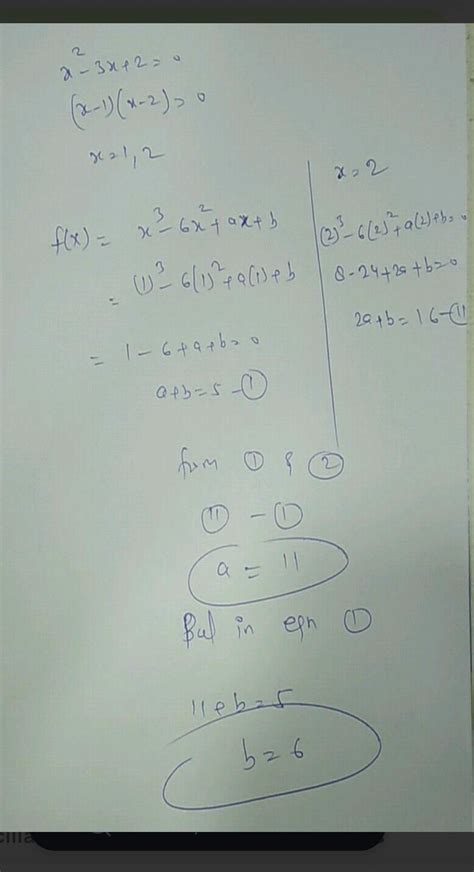 x²-3x+2=0
(x-1)(x-2)=0
x=1,2
f(x)= x³-6x²+ax+b
= (1)³-6(1)²+a(1)+b
= 1-6+a+b=0
a+b=5-①
x=2
(2)³-6(2)²+a(2)+b=0
8-24+2a+b=0
2a+b=16-⑪
from ① & ②
⑪ - ①
a = 11
Put in eqn ①
11+b=5
b=6